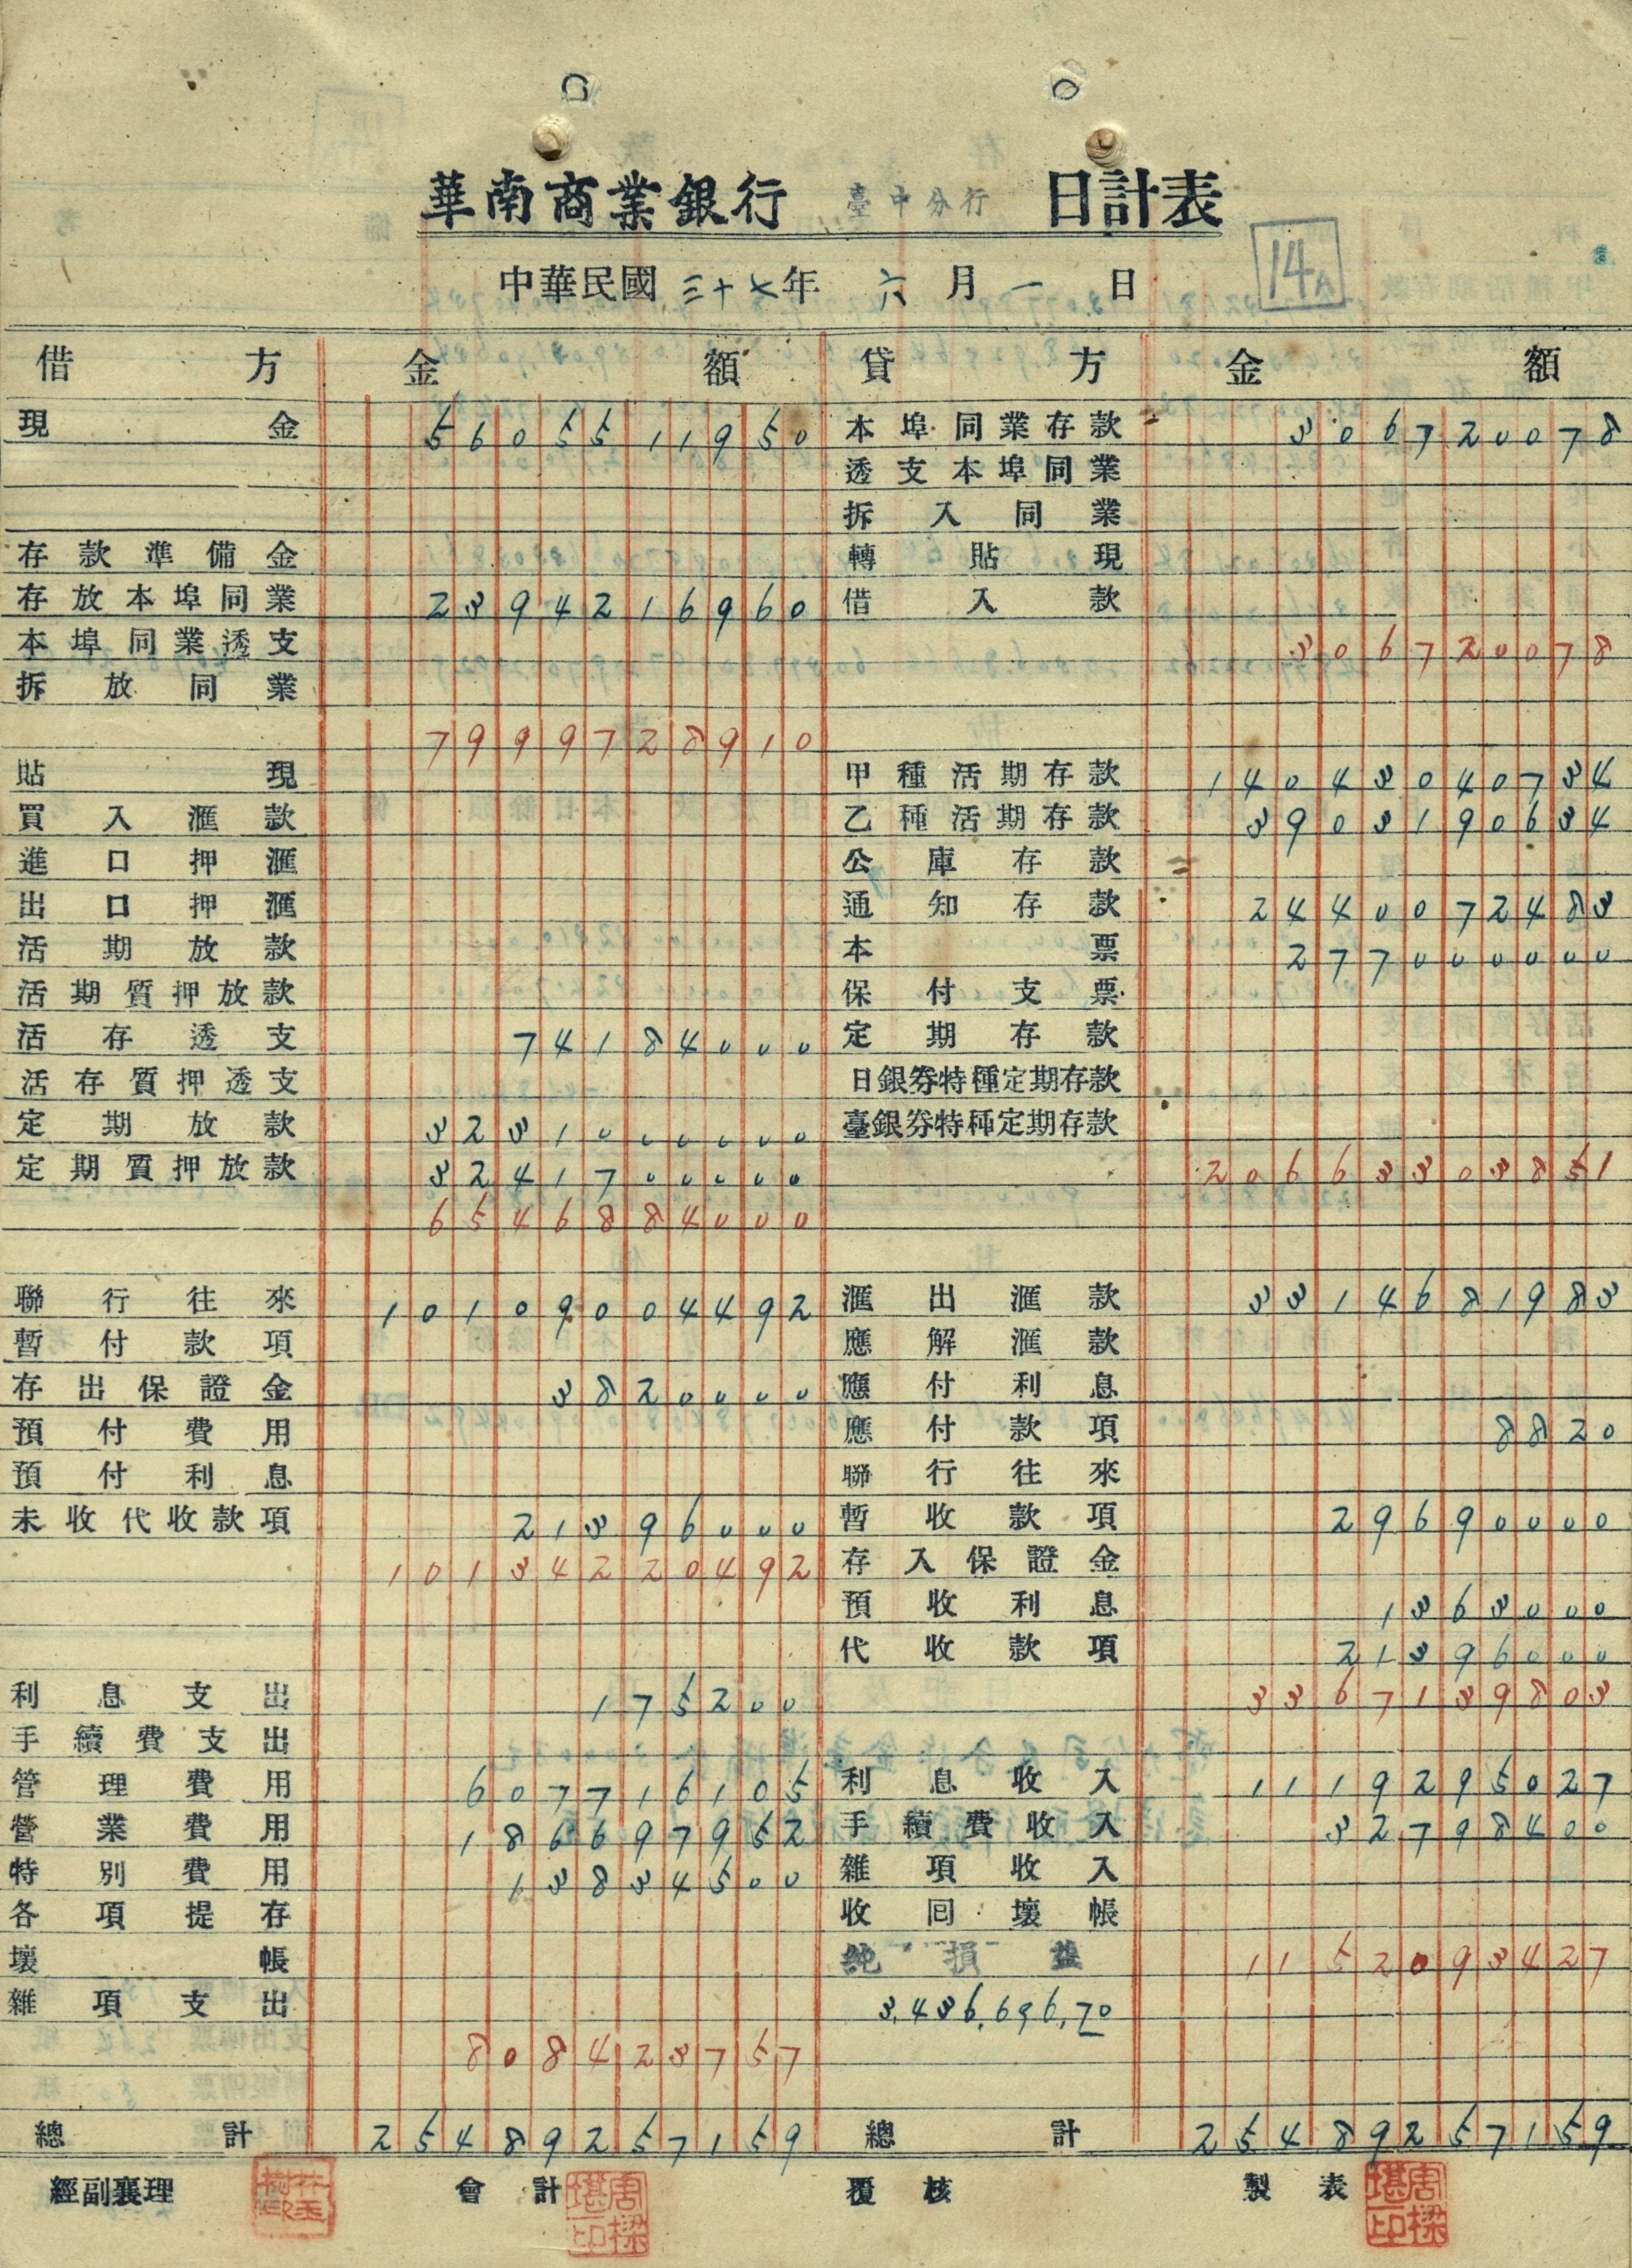 華南商業銀行 臺中分行 日計表
14A
中華民國三十七年 六月一日
借方 金額 貸方 金額
現金 5605511950 本埠同業存款 306720078
透支本埠同業
拆入同業
存款準備金 轉貼現
存放本埠同業 2394216960 借入款
本埠同業透支 306720078
拆放同業
7999728910
貼現 甲種活期存款 14043040734
買入滙款 乙種活期存款 3903190634
進口押滙 公庫存款
出口押滙 通知存款 2440072483
活期放款 本票 277000000
活期質押放款 保付支票
活存透支 74184000 定期存款
活存質押透支 日銀券特種定期存款
定期放款 3231000000 臺銀券特種定期存款
定期質押放款 3241700000 20663303851
6546884000
聯行往來 10109004492 滙出滙款 3314681983
暫付款項 應解滙款
存出保證金 3820000 應付利息
預付費用 應付款項 8820
預付利息 聯行往來
未收代收款項 21396000 暫收款項 29690000
10134220492 存入保證金
預收利息 1363000
代收款項 21396000
利息支出 175200 3367139803
手續費支出
管理費用 607716105 利息收入 1119295027
營業費用 186697952 手續費收入 32798400
特別費用 13834500 雜項收入
各項提存 收回壞帳
壞帳 純損益 1152093427
雜項支出 3,436,696.70
808423757
總計 25489257159 總計 25489257159
經副襄理 會計 覆核 製表